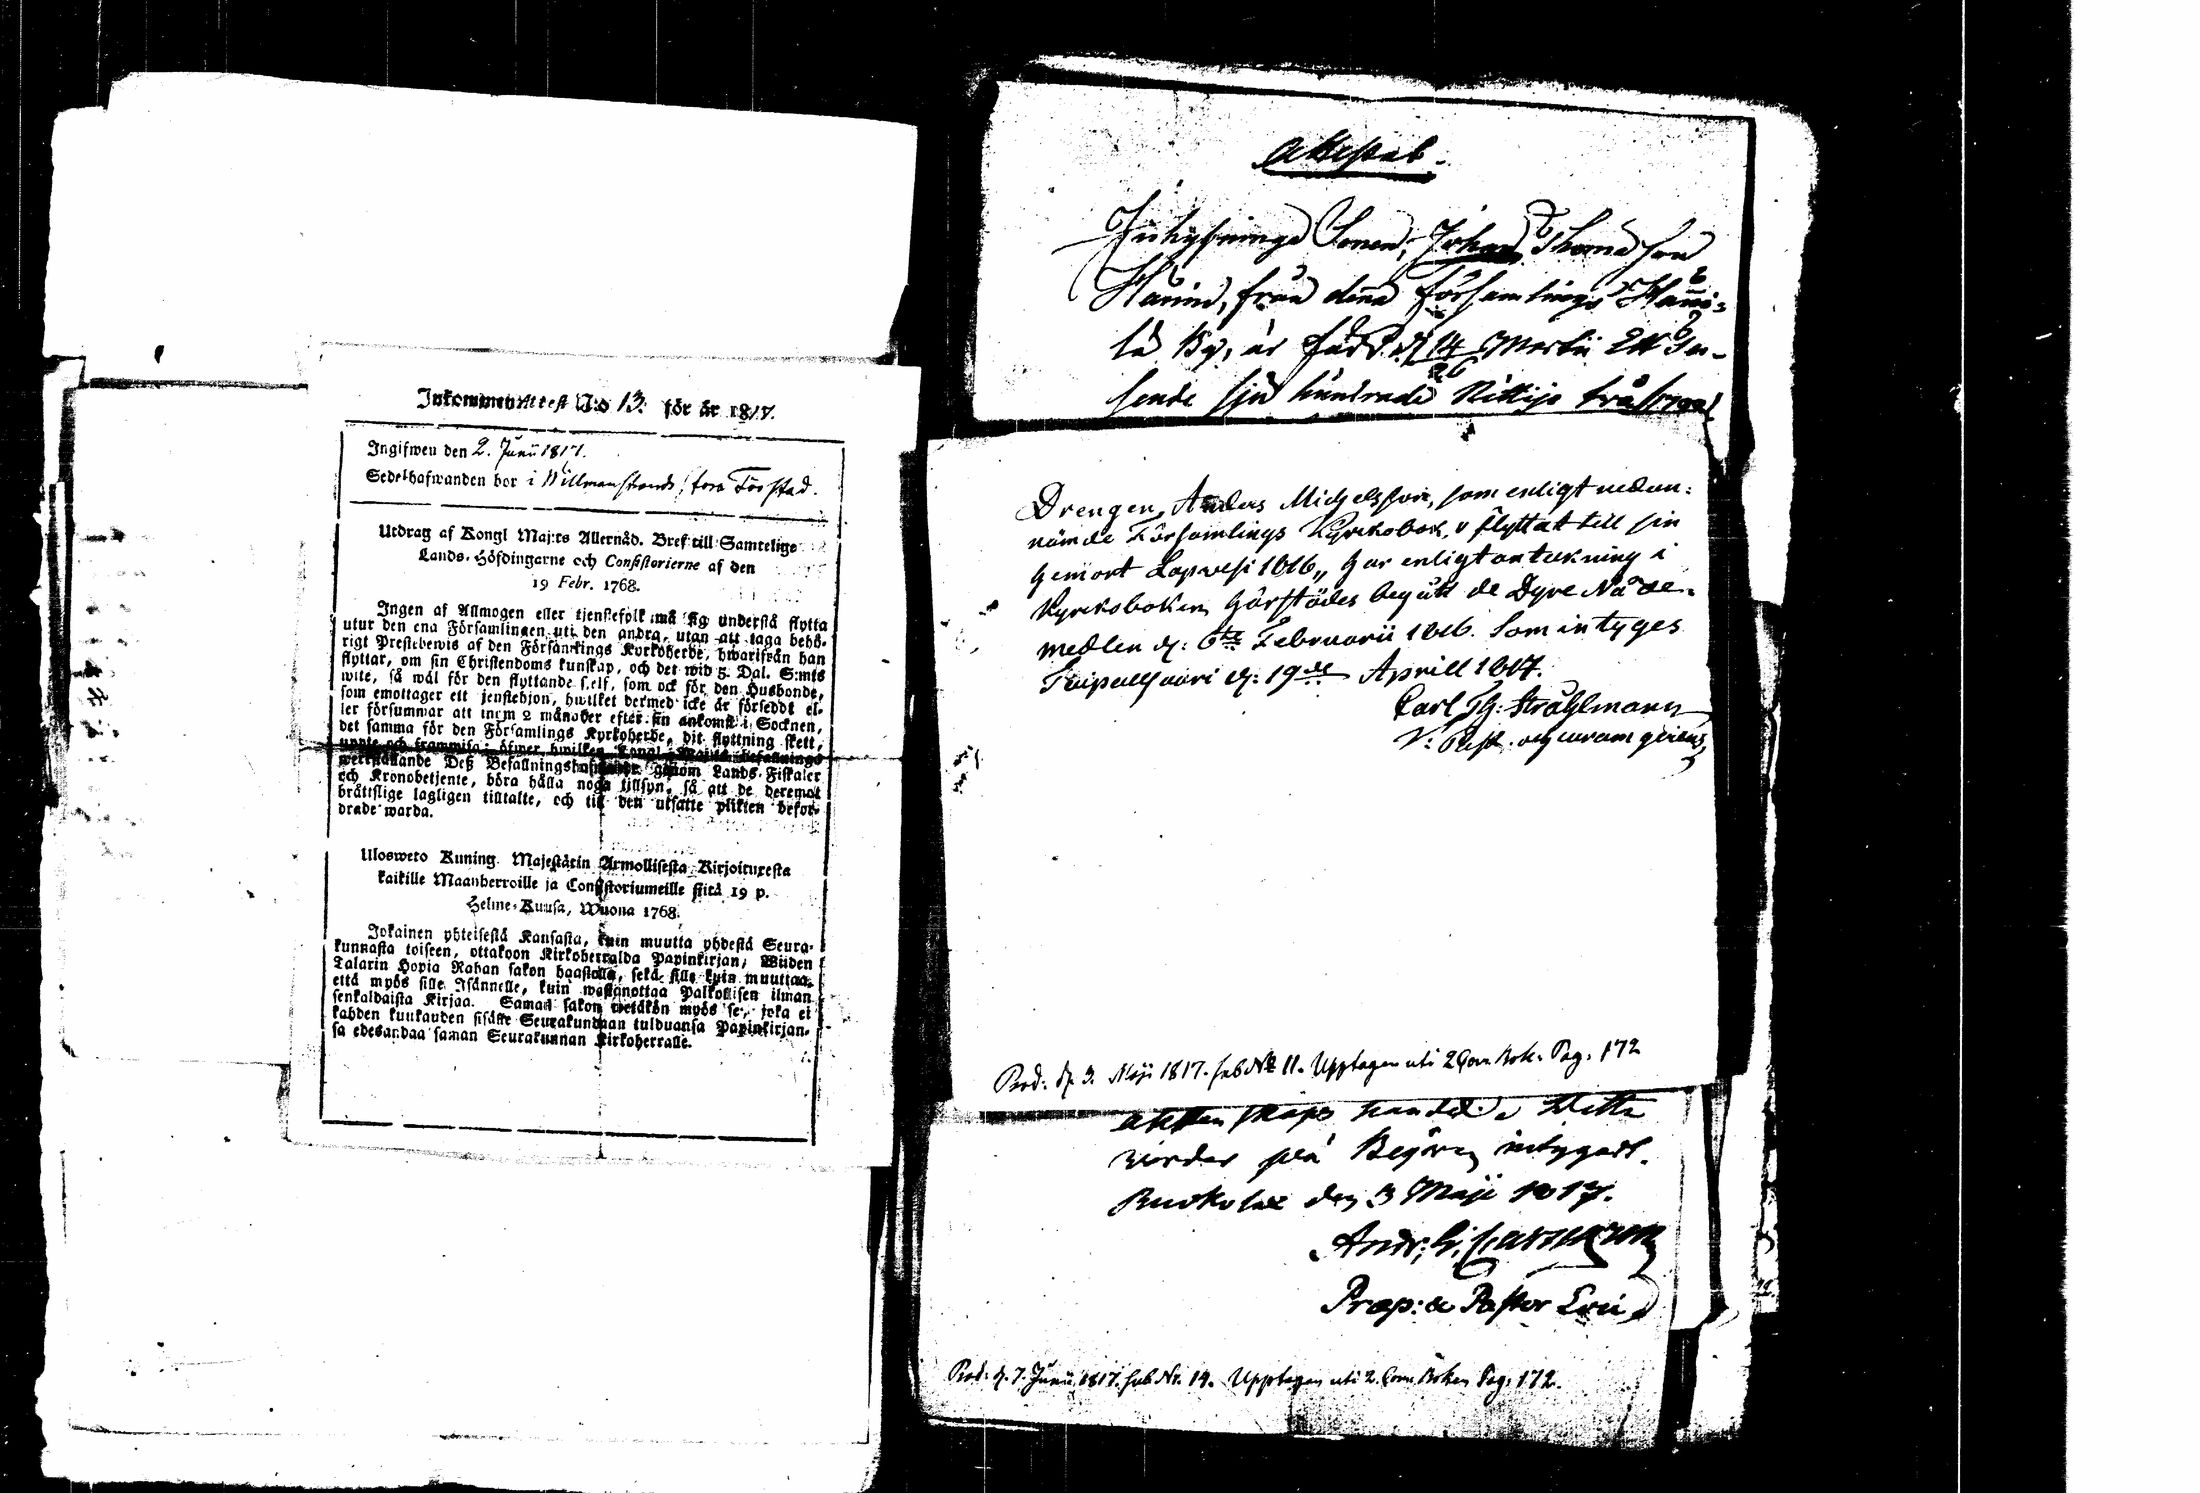 Inkommen Attest N:o 13. för år 1817.
Ingifwen den 2. Junii 1817.
Sedelhafwanden bor i Willmanstrands förstad.
Utdrag af Kongl Maj:ts Allernåd. Bref till Samtelige
Lands-Höfdingarne och Consistorierne af den
19 Febr. 1768.
Ingen af Allmogen eller tjenstefolk må sig understå flytta
utur den ena Församlingen uti den andra, utan att taga behö-
rigt Prestebewis af den Församlings Kyrkoherde, hwarifrån han
flyttat, om sin Christendoms kunskap, och det wid 5. Dal. S:mts
wite, så wäl för den flyttande self, som ock för den Husbonde,
som emottager ett jenstehjon, hwilket dermed icke är försedt el-
ler försummar att inom 2 månader efter sin ankomst i Socknen,
det samma för den Församlings Kyrkoherde, dit flyttning skett,
uppte och frammisa; öfwer hwilken Kongl. Maj:ts befallnings
werkställande Deß Befallningshafwande genom Lands-Fiskaler
och Kronobetjente, böra hålla noga tillsyn, så att de deremot
bråttslige lagligen tilltalte, och till den utsatte plikten befor-
drade warda.
Ulosweto Kuning. Majestätin Armollisesta Kirjoituxesta
kaikille Maanherroille ja Consistoriumeille siitä 19 p.
Helme-Kuusa, Wuona 1768.
Jokainen yhteisestä Kansasta, kuin muutta yhdestä Seura-
kunnasta toiseen, ottakoon Kirkoherralda Papinkirjan, Wiiden
Talarin Hopia Rahan sakon haastolla, sekä sille kuin muuttaa,
että myös sille Isännelle, kuin wastanottaa Palkollisen ilman
senkaldaista Kirjaa. Saman sakon wetäkön myös se, joka ei
kahden kuukauden sisälle Seurakundaan tulduansa Papinkirjan-
sa edesandaa saman Seurakunnan Kirkoherralle.
Attest.
Inhysinge Sonen, Johan Thomasson
från denna Församlings
lä By, är född d. 14 Martii Ett Tu-
sende sju hundrade Nittijo
Drengen Anders Michelsson, som enligt nedan-
nämde Församlings Kyrkobok, flyttat till sin
hemort Lapvesi 1816, har enligt anteckning i
Kyrkoboken härstädes begått de Dyre Nåde-
medlen d: 6te Februarii 1816. Som intyges
Taipalsaari d: 19de Aprill 1817.
Carl Th: Stråhlmann
V: Past. och curam gerens
Prod: d. 3. Maji 1817. sub No 11. Upptagen uti 2 Com. Bok. Pag: 172
ächtenskaps handel. Detta
warder på Begäran intygadt.
Ruokolax den 3 Maji 1817.
Andr: G.
Præp: & Pastor Loci
Prod: d. 7. Junii 1817. sub No. 14. Upptagen uti 2. Com. Boken Pag: 172.